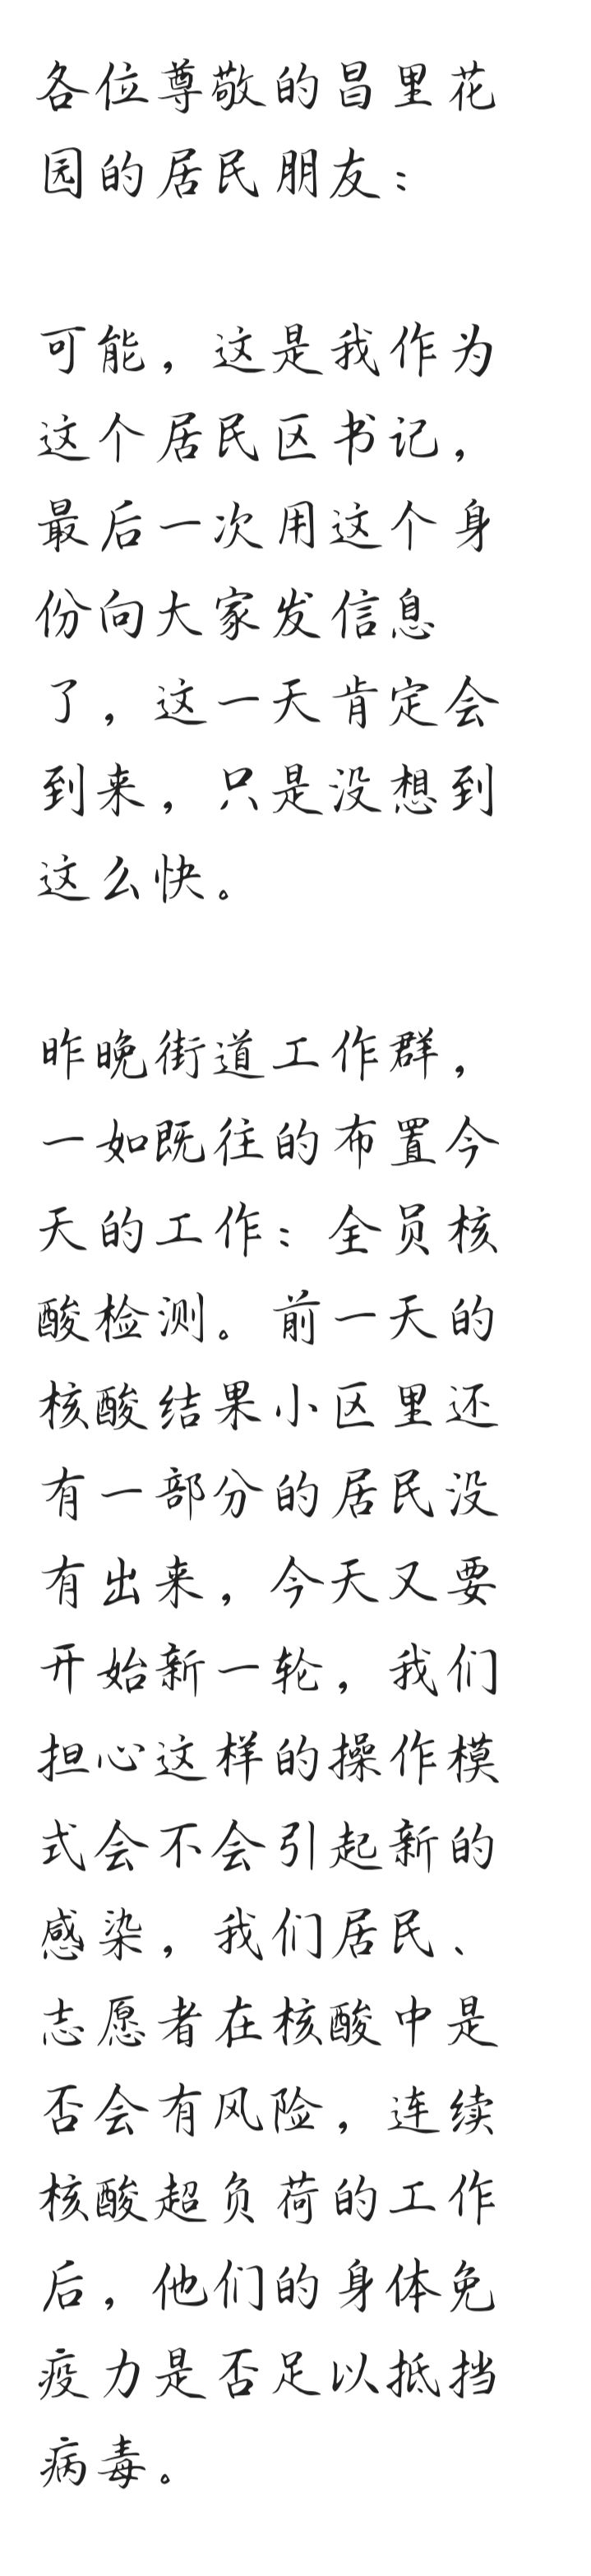 各位尊敬的昌里花
园的居民朋友：
可能，这是我作为
这个居民区书记，
最后一次用这个身
份向大家发信息
了，这一天肯定会
到来，只是没想到
这么快。
昨晚街道工作群，
一如既往的布置今
天的工作：全员核
酸检测。前一天的
核酸结果小区里还
有一部分的居民没
有出来，今天又要
开始新一轮，我们
担心这样的操作模
式会不会引起新的
感染，我们居民、
志愿者在核酸中是
否会有风险，连续
核酸超负荷的工作
后，他们的身体免
疫力是否足以抵挡
病毒。